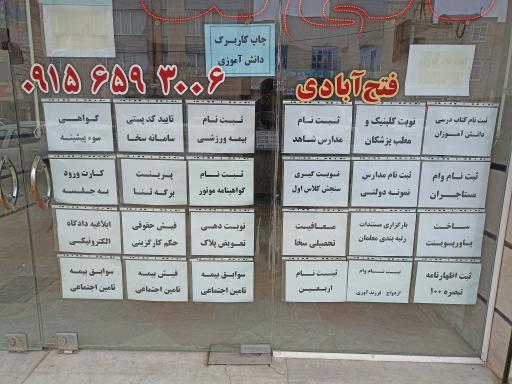 چاپ کاربرگ
دانش آموزی
۰۹۱۵ ۶۵۹ ۳۰۰۶
فتح‌آبادی
ثبت نام کتاب درسی
دانش آموزان
نوبت کلینیک و
مطب پزشکان
ثبت نام
مدارس شاهد
ثبت نام
بیمه ورزشی
تایید کد پستی
سامانه سخا
گواهی
سوء پیشینه
ثبت نام وام
مستاجران
ثبت نام مدارس
نمونه دولتی
نوبت گیری
سنجش کلاس اول
ثبت نام
گواهینامه موتور
پرینت
برگه ثنا
کارت ورود
به جلسه
ساخت
پاورپوینت
بارگزاری مستندات
رتبه بندی معلمان
معافیت
تحصیلی سخا
نوبت دهی
تعویض پلاک
فیش حقوقی
حکم کارگزینی
ابلاغیه دادگاه
الکترونیکی
ثبت اظهارنامه
تبصره ۱۰۰
ثبت نام وام
ازدواج - فرزند آوری
ثبت نام
اربعین
سوابق بیمه
تامین اجتماعی
فیش بیمه
تامین اجتماعی
سوابق بیمه
تامین اجتماعی